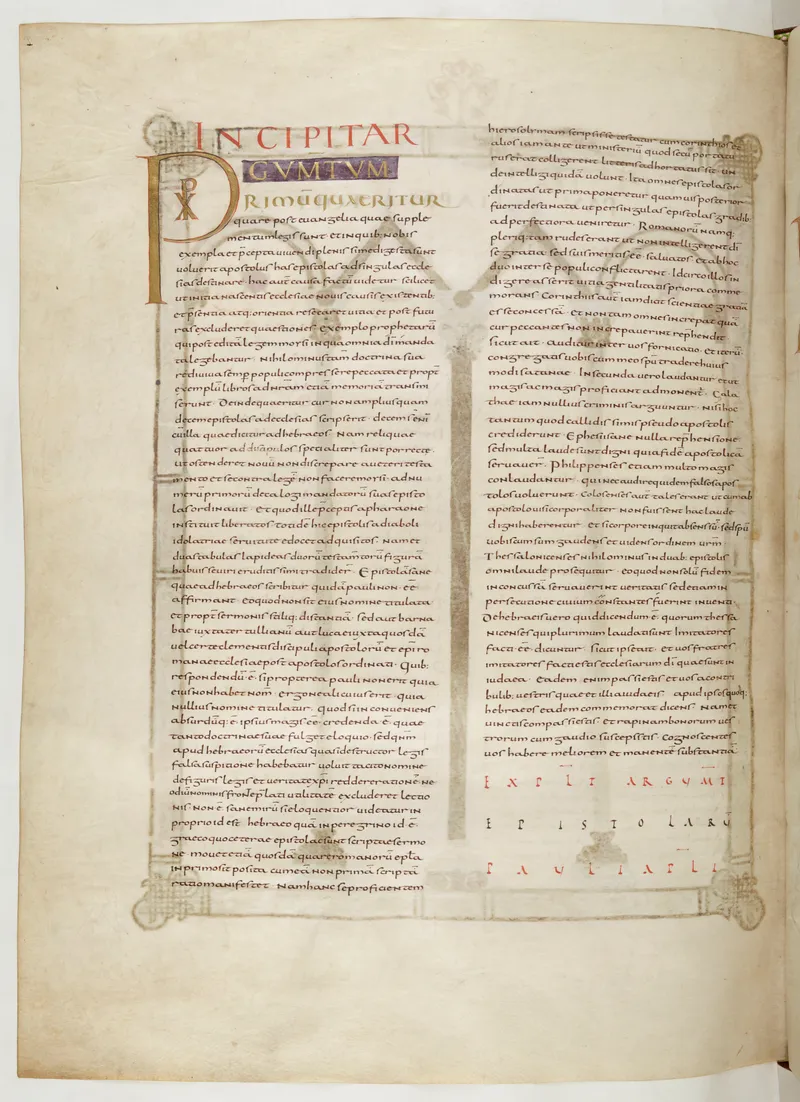 INCIPIT AR
GVMTVM
PRIMŪ QUÆRITUR
quare post euangelia quae supple
mentum legis sunt et in quib; nobis
exempla et p̄cepta uiuendi plenissime digesta sūnt
uoluerit apostolus has epistolas ad singulas eccle
sias destinare. hac aut̄ causa factū uidetur scilicet
ut initia nascentis ecclesiae nouis causis existentib;
et p̄sentia atq; orientia resecaret uitia et post futu
ras excluderet quaestiones. exemplo prophetarū
qui post edita legem mosi in qua omnia dī manda
ta legebantur. Nihilominus tam doctrina sua
rediuiua semp populi compressere peccata et propt̄
exemplū libros ad nr̄am etiā memoriā transmi
serunt. Deinde quaeritur cur non amplius quam
decem epistolas ad ecclesias scripserit. decem sūnt
cū illa quae dicitur ad hebraeos. Nam reliquae
quattuor ad discipulos specialiter sunt porrecte.
Ut ostenderet nouū non discrepare a ueteri testa
mento et se contra legē non facere mosi. ad nu
merū primorū decalogi mandatorū suas episto
las ordinauit. Et quod ille p̄ceptis a pharaone
instituit liberatos totidē hic epistolis a diaboli
idolatriae seruitute edocet adquisitos. Nam et
duas tabulas lapideas duorū testam̄torū figurā
habuisse uiri eruditissimi tradider̄. Epistolā sane
quae ad hebraeos scribitur quidā pauli non. ēē
affirmant. eo quod non sit eius nomine titulata
et propt̄ sermonis stiliq; distantiā. sed aut barna
bae iuxta tertullianū aut lucae iuxta quosdā
uel certe clementis discipuli apostolorū et episco
romanae ecclesiae post apostolos ordinati. Quib;
respondendū. ē. si propterea pauli non erit quia
eius non habet nom̄. ergo nec alicuius erit. quia
nullius nomine titulatur. quod si inconueniens
absurdūq; ē. ipsius magis ēē credenda. ē. quae
tanto doctrinae suae fulget eloquio. sed qnm̄
apud hebraeorū ecclesias quasi destructor legis
falsa suspitione habebatur uoluit tacito nomine
de figuris legis et ueritate xpī reddere rationē. ne
odiū nominis fronte p̄lati utilitatē excluderet lectio
nis non ē sane mirū si eloquentior uideatur in
proprio id est hebraeo quā in peregrino id. ē.
graeco quo ceterae epistolae sūnt scriptae sermo
ne. mouet etiā quosdā quare romanorū epl̄a
in primo sit posita cum eā non primā scriptā
ratio manifestet. Nam hanc se proficientem
hierosolimam scripsisse testatur cum corinthios et
alios iam ante ut ministeriū quod secū portatu
rus erat colligerent litteris adhortatus sit. un
de intelligi quidā uolunt. Ita omnes epistolas or
dinatas ut prima poneretur quamuis posterior
fuerit destinata ut per singulas epistolas gradib;
ad perfectiora ueniretur. Romanorū namq;
pleriq; tam rudes erant ut non intelligerent dī
se gratia sed suis meritis ēē saluatos. et ab hoc
duo inter se populi conflictarent. Idcirco illos in
digere asserit uitia gentilitatis priora comme
morans. Corinthiis aut̄ iam dicit scientiae gratiā
ēē concessā. et non tam omnes increpat quā
cur peccantes non increpauerint rephendit
sicut ait. auditur inter uos fornicatio. et iterū.
congregatis uobis cum meo spū tradere huius
modi satanae. In secunda uero laudantur et ut
magis ac magis proficiant admonent̄. Gala
thae iam nullius criminis arguuntur. nisi hoc
tantum quod callidissimis pseudo apostolis
crediderunt. Ephesii sane nulla rephensione
sed multa laude sunt digni quia fidē apostolicā
seruauer̄. Philippenses etiam multo magis
conlaudantur. qui nec audire quidem falsos apos
tolos uoluerunt. Colosenses aut̄ tales erant ut cum ab
apostolo uisi corporaliter non fuissent hac laude
digni haberentur. et si corpore inquit absens sū. sed spū
uobiscum sum gaudens et uidens ordinem ur̄m.
Thessalonicenses nihilominus in duab; epistolis
omni laude prosequitur. eo quod non solū fidem
inconcussā seruauerint ueritatis sed etiam in
persecutione ciuium constantes fuerint inuenti.
De hebraeis uero quid dicendum ē. quorum thessa
nicenses qui plurimum laudati sunt imitatores
facti. ēē. dicuntur. sicut ipse ait. et uos fratres
imitatores facti estis ecclesiarum dī quae sūnt in
iudaea. Eadem enim passi estis et uos a contri
bulib; uestris quae et illi a iudaeis. apud ipsos quoq;
hebraeos eadem commemorat dicens. Nam et
uinctis compassi estis. et rapinam bonorum ues
trorum cum gaudio suscepistis. Cognoscentes
uos habere meliorem et manentē substantiā.
EXPLT ARGVMT
EPISTOLARŪ
PAVLI APLI